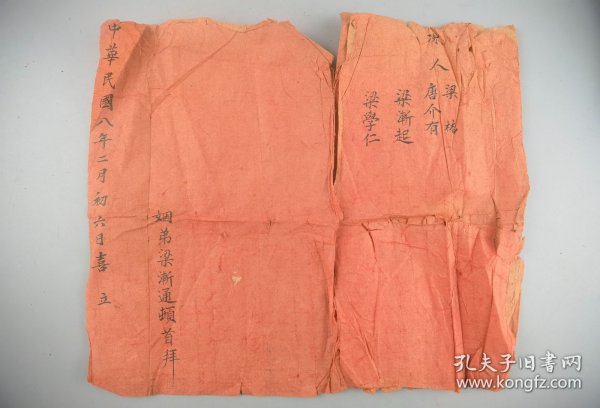 人
梁
唐介有
梁漸起
梁學仁
姻弟梁漸通頓首拜
中華民國八年二月初六日喜立
孔夫子旧书网
www.kongfz.com